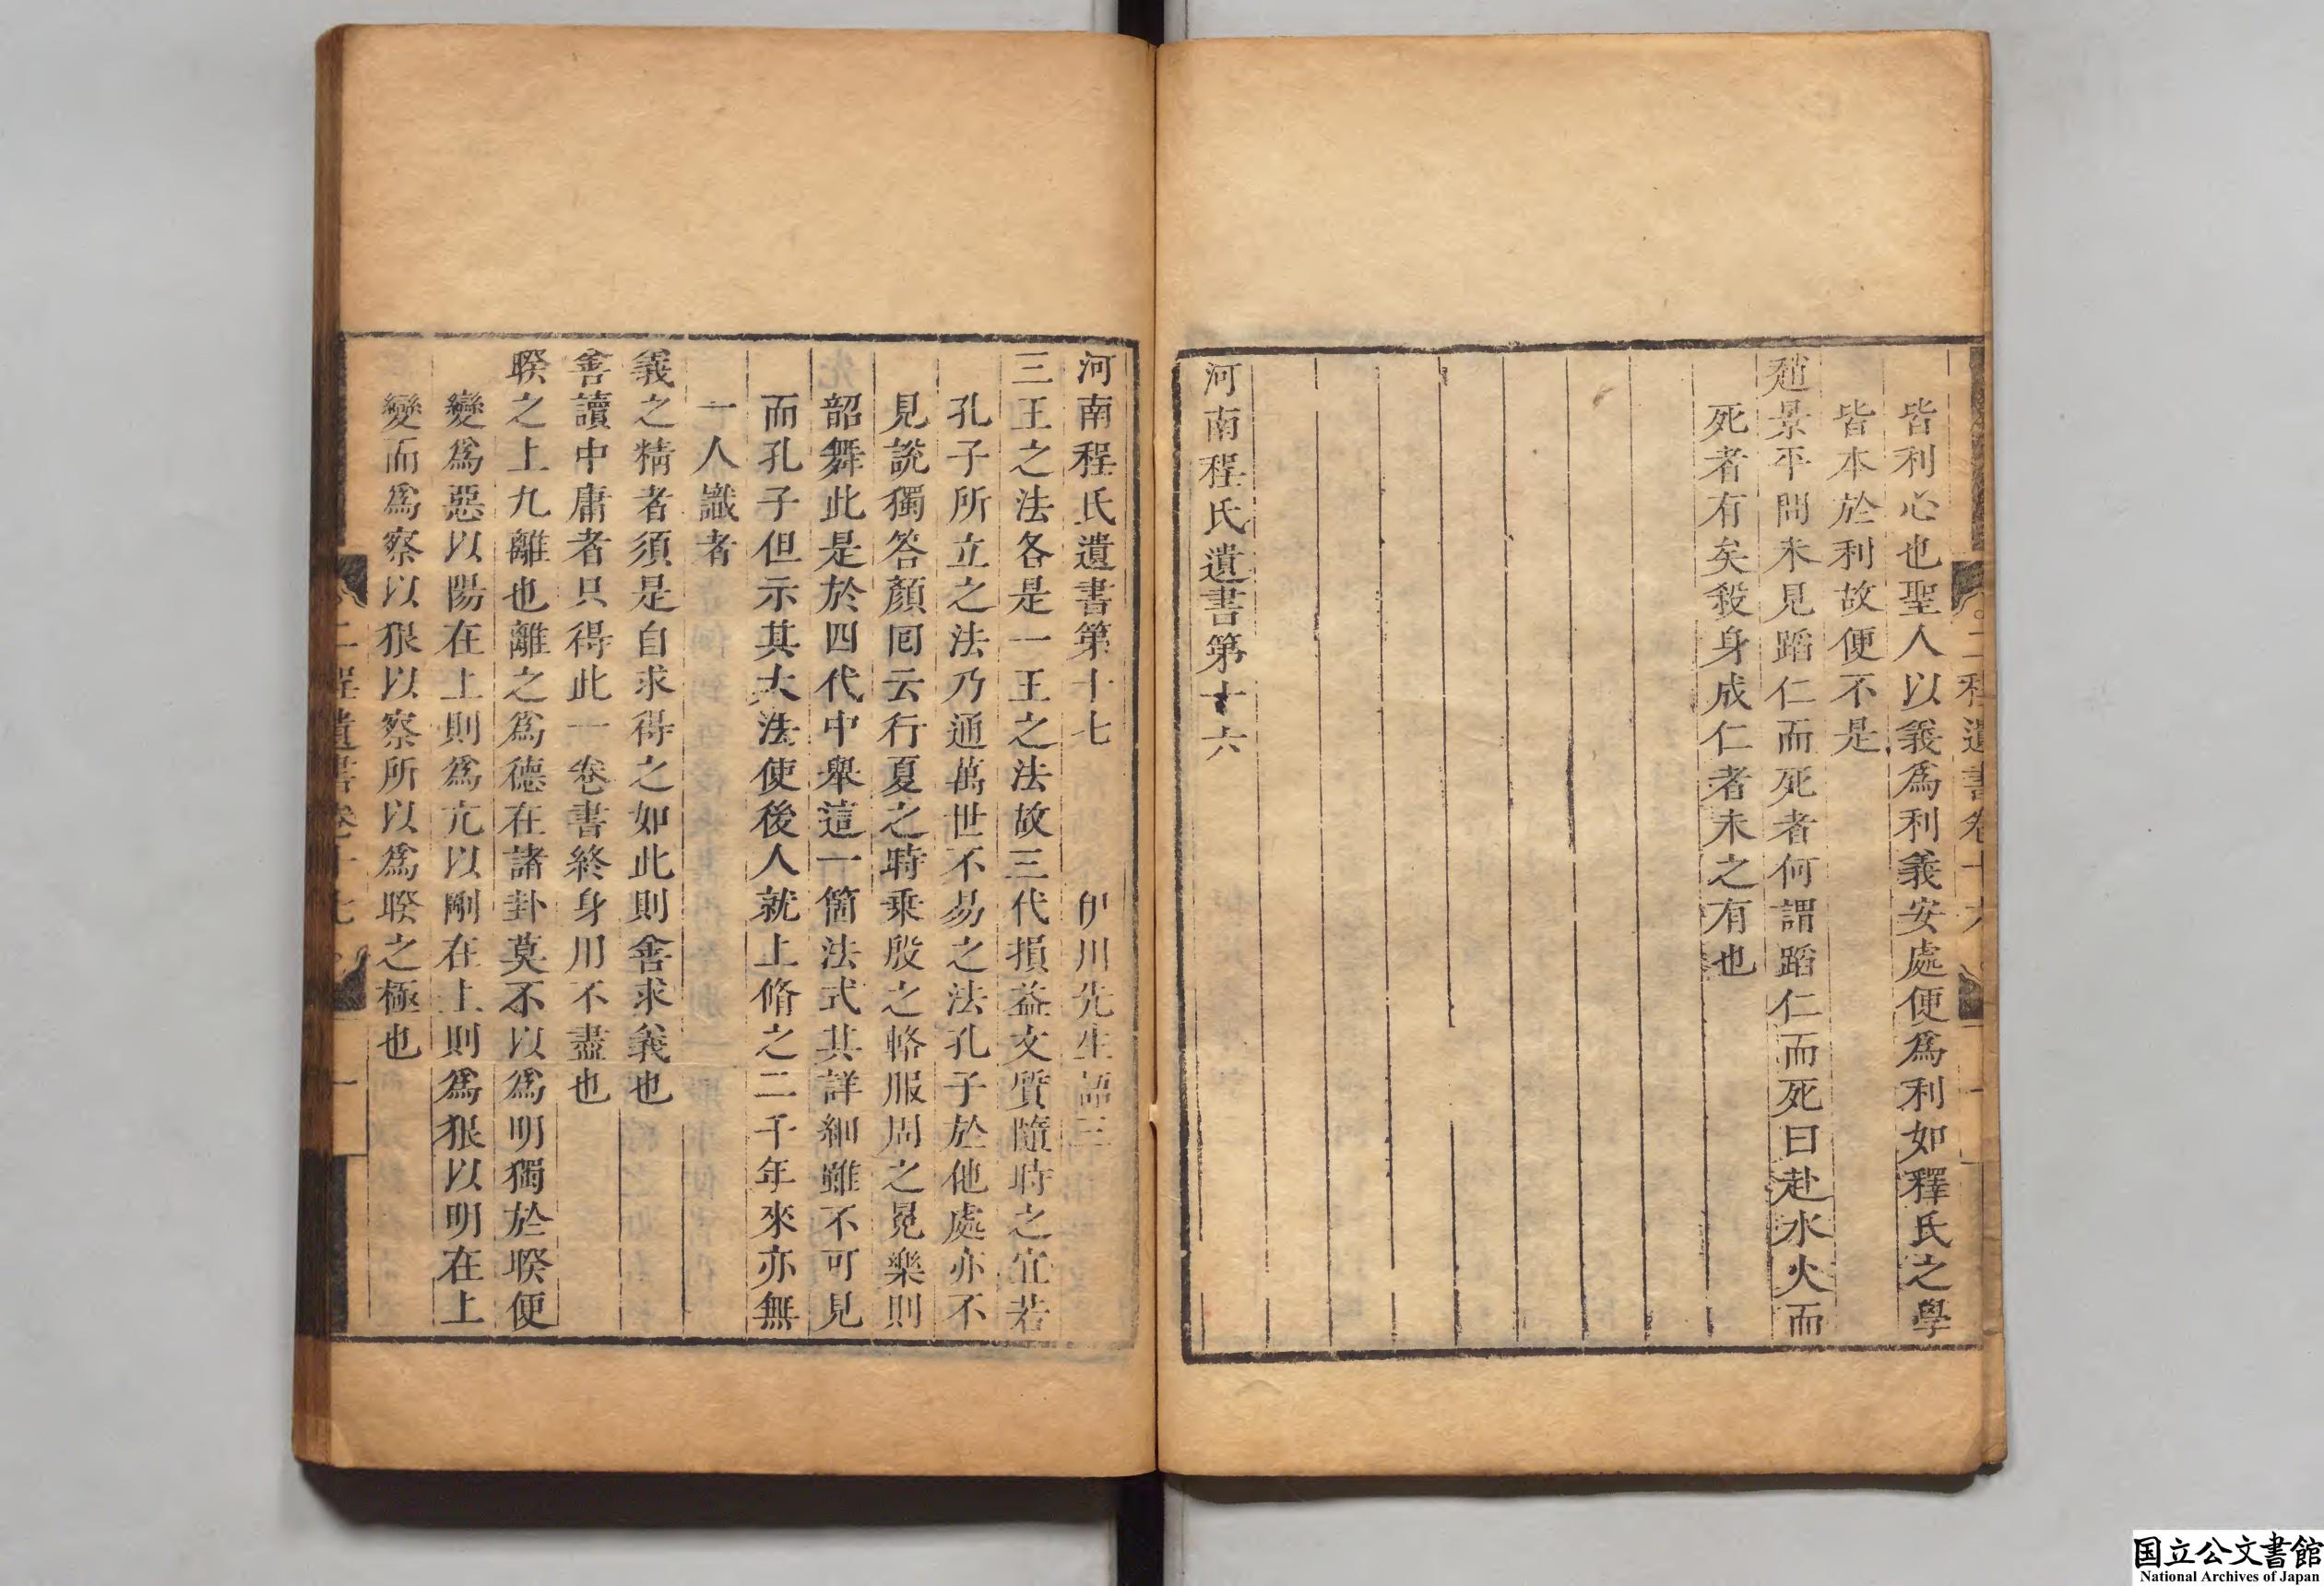 二程遺書卷十六
皆利心也聖人以義爲利義安處便爲利如釋氏之學
皆本於利故便不是
趙景平問未見蹈仁而死者何謂蹈仁而死曰赴水火而
死者有矣殺身成仁者未之有也
河南程氏遺書第十六
河南程氏遺書第十七 伊川先生語三
三王之法各是一王之法故三代損益文質隨時之宜若
孔子所立之法乃通萬世不易之法孔子於他處亦不
見說獨答顏囘云行夏之時乘殷之輅服周之冕樂則
韶舞此是於四代中舉這一箇法式其詳細雖不可見
而孔子但示其大法使後人就上脩之二千年來亦無
一人識者
義之精者須是自求得之如此則善求義也
善讀中庸者只得此一卷書終身用不盡也
睽之上九離也離之爲德在諸卦莫不以爲明獨於睽便
變爲惡以陽在上則爲亢以剛在上則爲狠以明在上
變而爲察以狠以察所以爲睽之極也
二程遺書卷十七 一
国立公文書館
National Archives of Japan